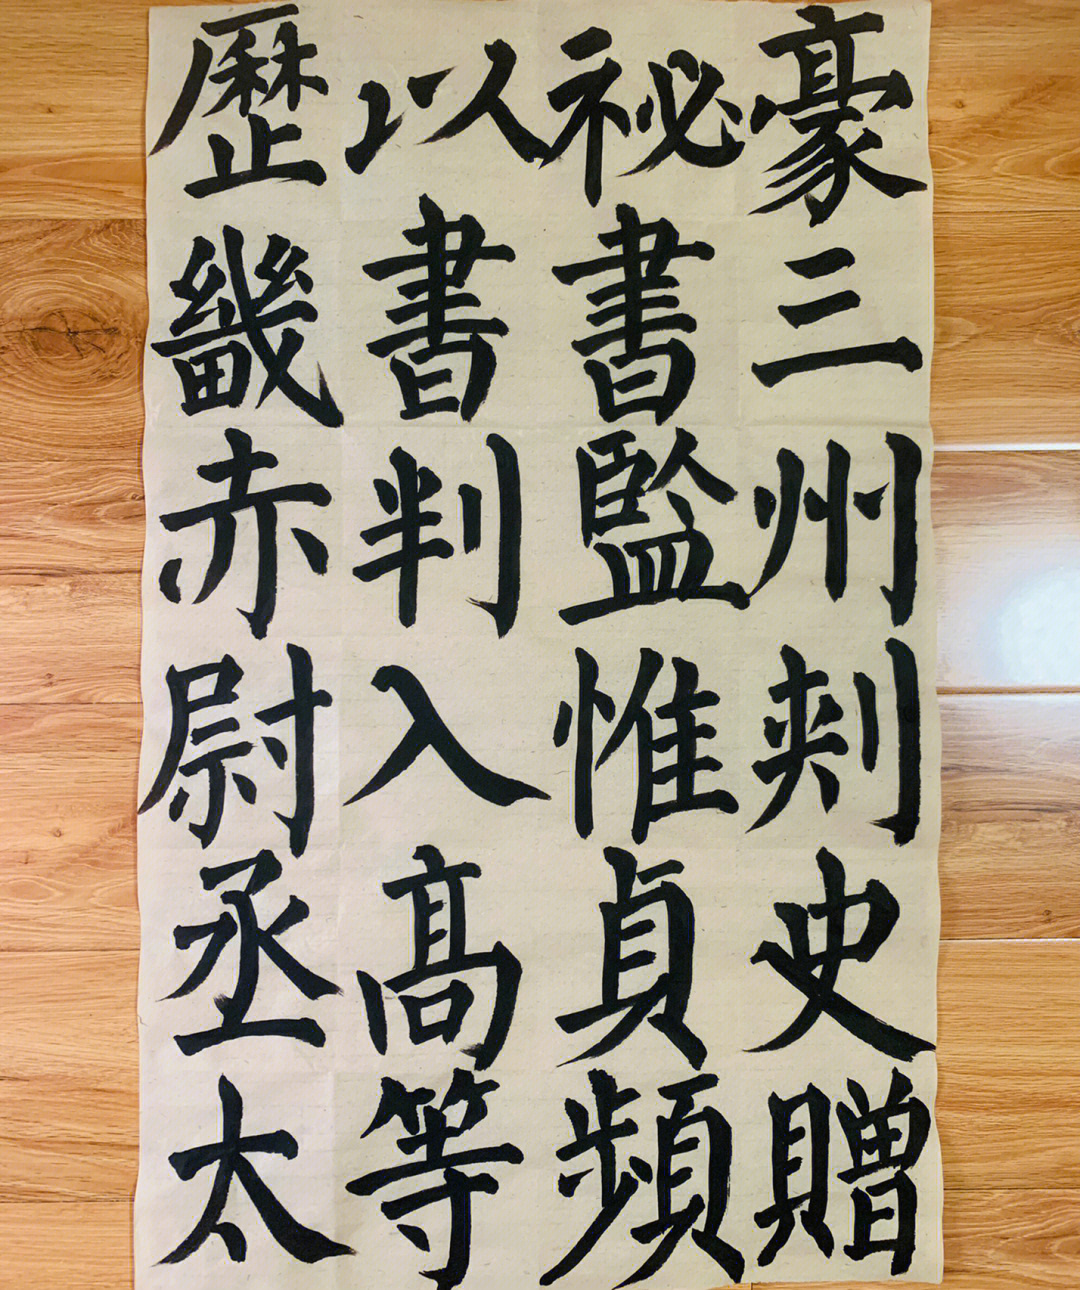 豪三州刾史贈
祕書監惟貞頻
以書判入高等
歷畿赤尉丞太